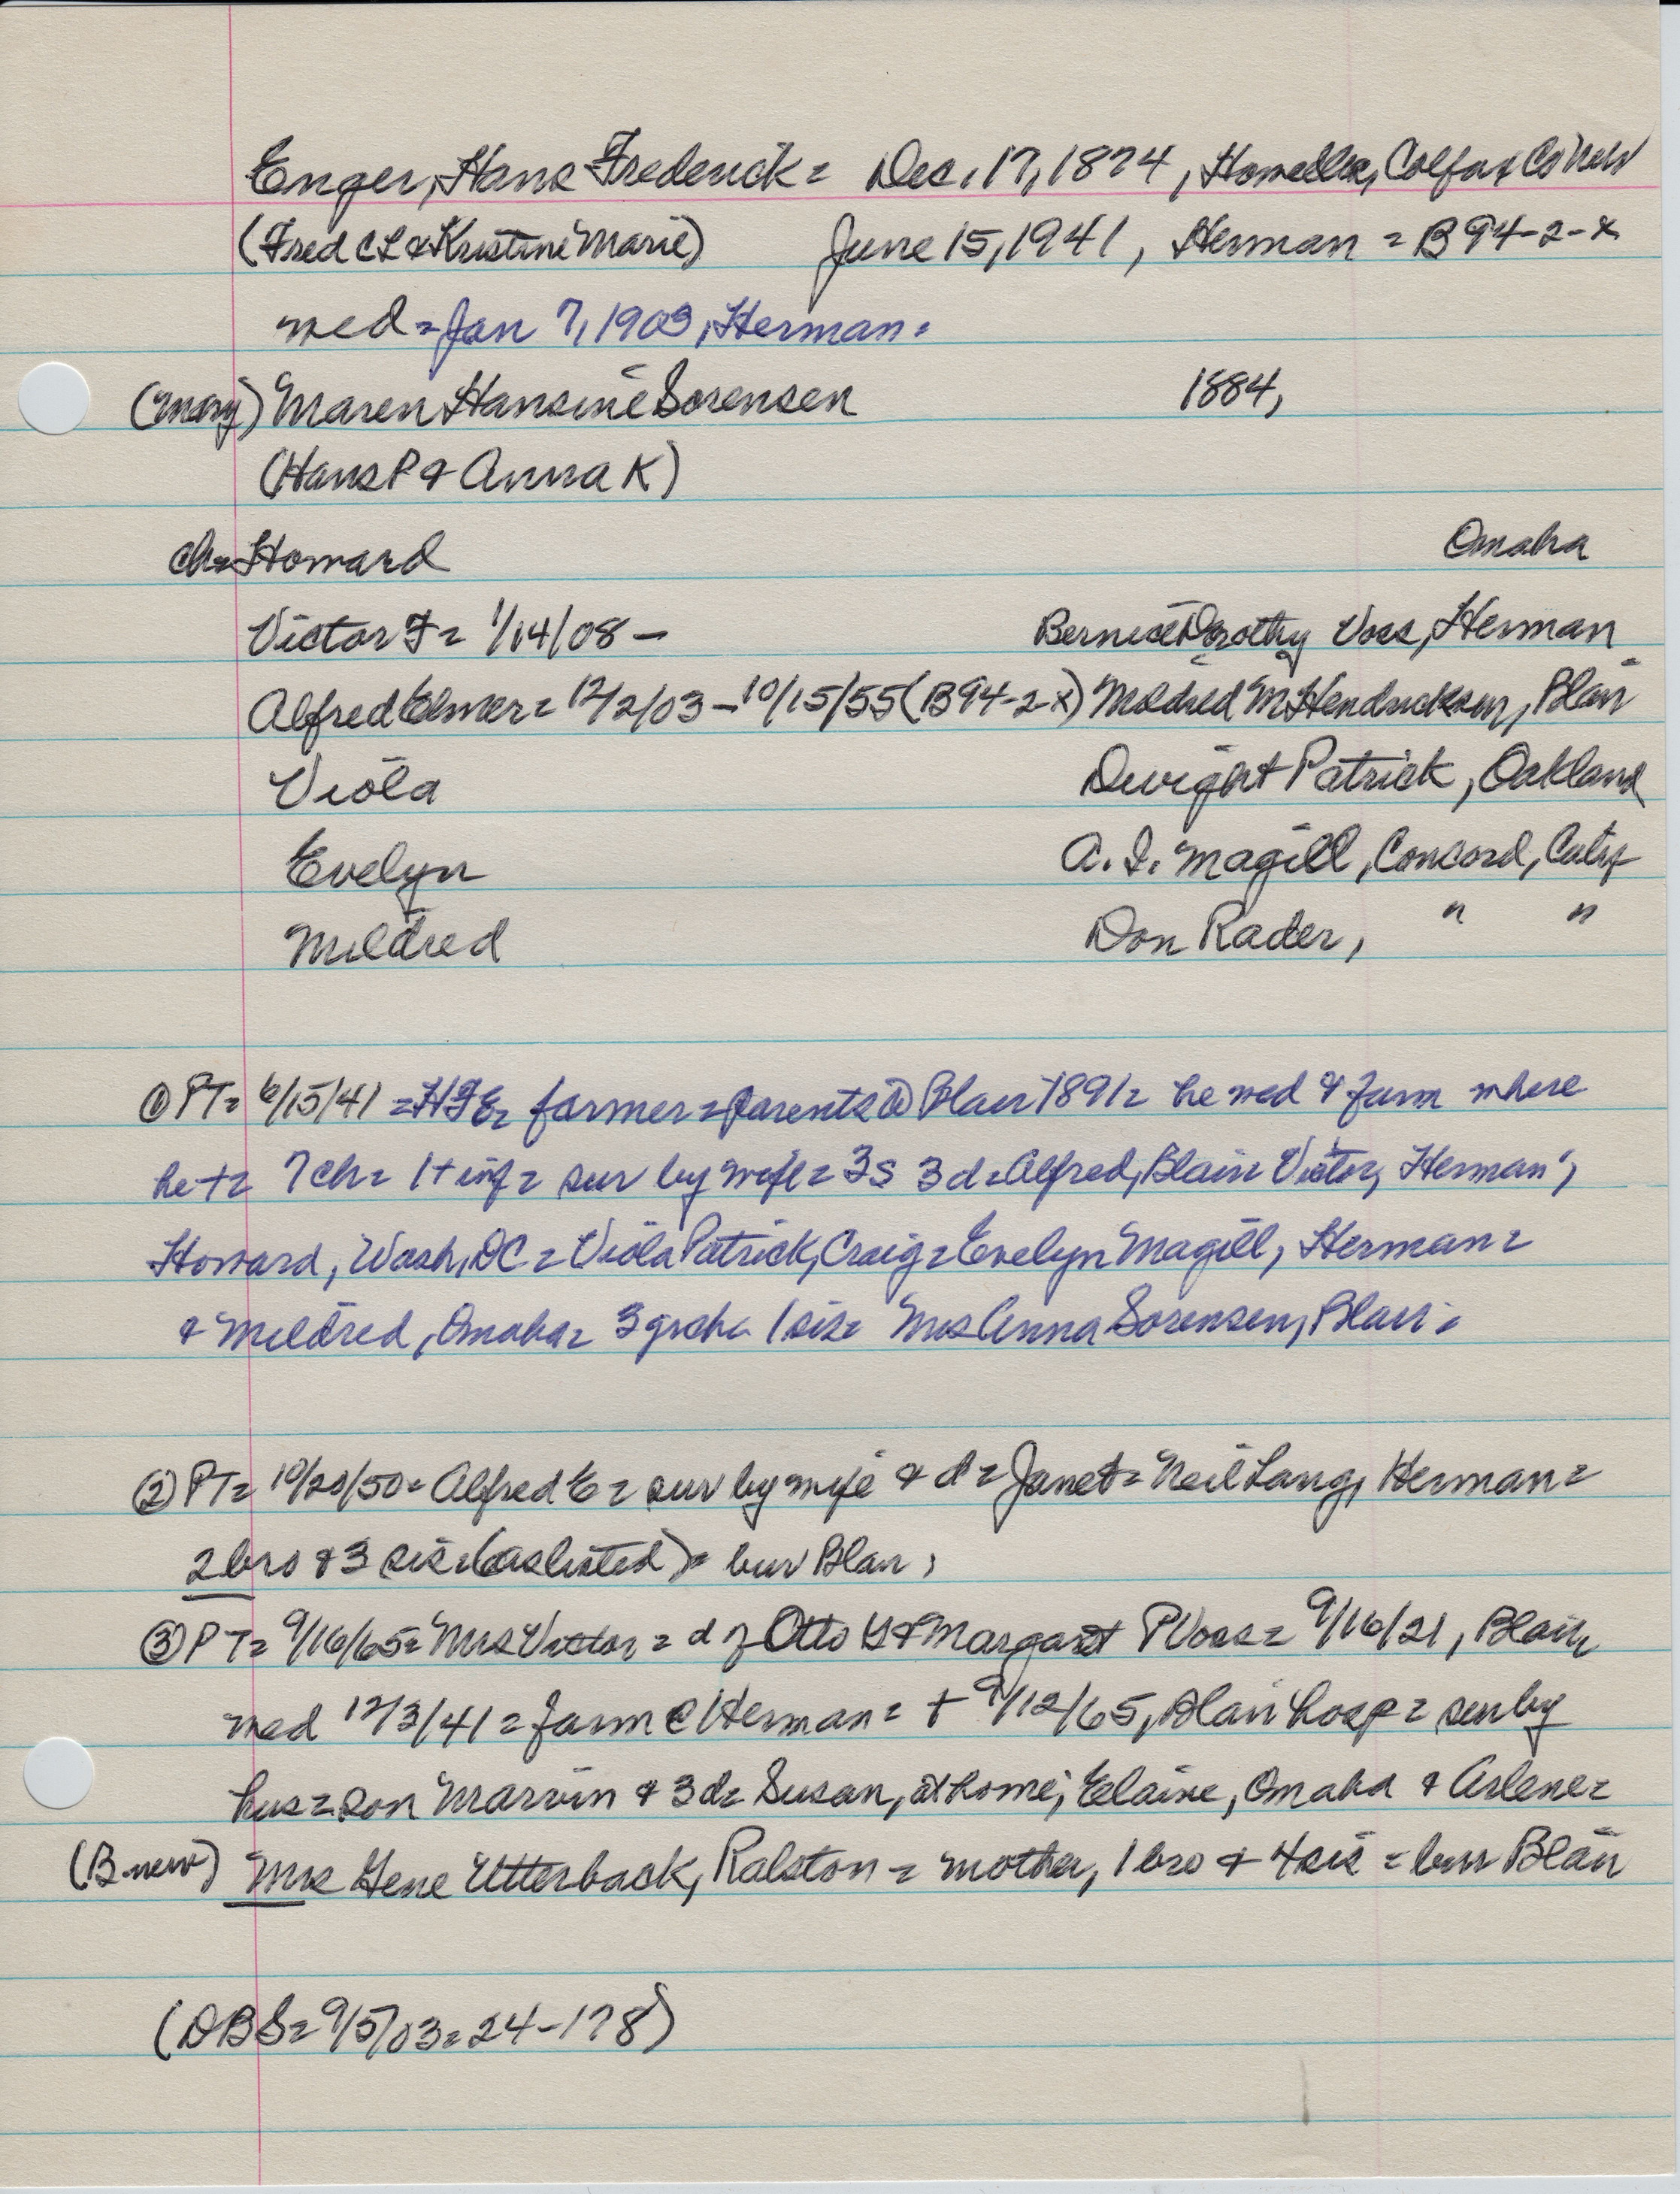 Enger, Hans Frederick = Dec. 17, 1874, Howells, Colfax Co Neb
(Fred CL & Kristine Marie) June 15, 1941, Herman = B 94-2-x
wed = Jan 7, 1903, Herman =
(Mary) Maren Hansine Sorensen 1884,
(Hans P & Anna K)
ch = Howard Omaha
Victor F = 1/14/08 - Bernice Dorothy Voss, Herman
Alfred Elmer = 12/2/03 - 10/15/55 (B94-2-x) Mildred M Hendricksen, Blair
Viola Dwight Patrick, Oakland
Evelyn A. I. Magill, Concord, Calif
Mildred Don Rader, " "
① PT = 6/15/41 = HFE = farmer = parents @ Blair 1891 = he wed & farm where
he + = 7 ch = 1 + inf = sur by wife = 3s 3d = Alfred, Blair Victor, Herman;
Howard, Wash, DC = Viola Patrick, Craig = Evelyn Magill, Herman =
& Mildred, Omaha = 3 grch 1 sis = Mrs Anna Sorensen, Blair =
② PT = 10/20/50 = Alfred E = sur by wife & d = Janet = Neil Lang, Herman =
2 bro & 3 sis (as listed) = bur Blair,
③ PT = 9/16/65 = Mrs Victor = d of Otto & Margaret P Voss = 9/16/21, Blair,
wed 12/3/41 = farm @ Herman = + 9/12/65, Blair hosp = sur by
hus = son Marvin & 3d = Susan, at home; Elaine, Omaha & Arlene =
(B-new) Mrs Gene Utterback, Ralston = mother, 1 bro & 4 sis = bur Blair
(DBS = 9/5/03 = 24-178)